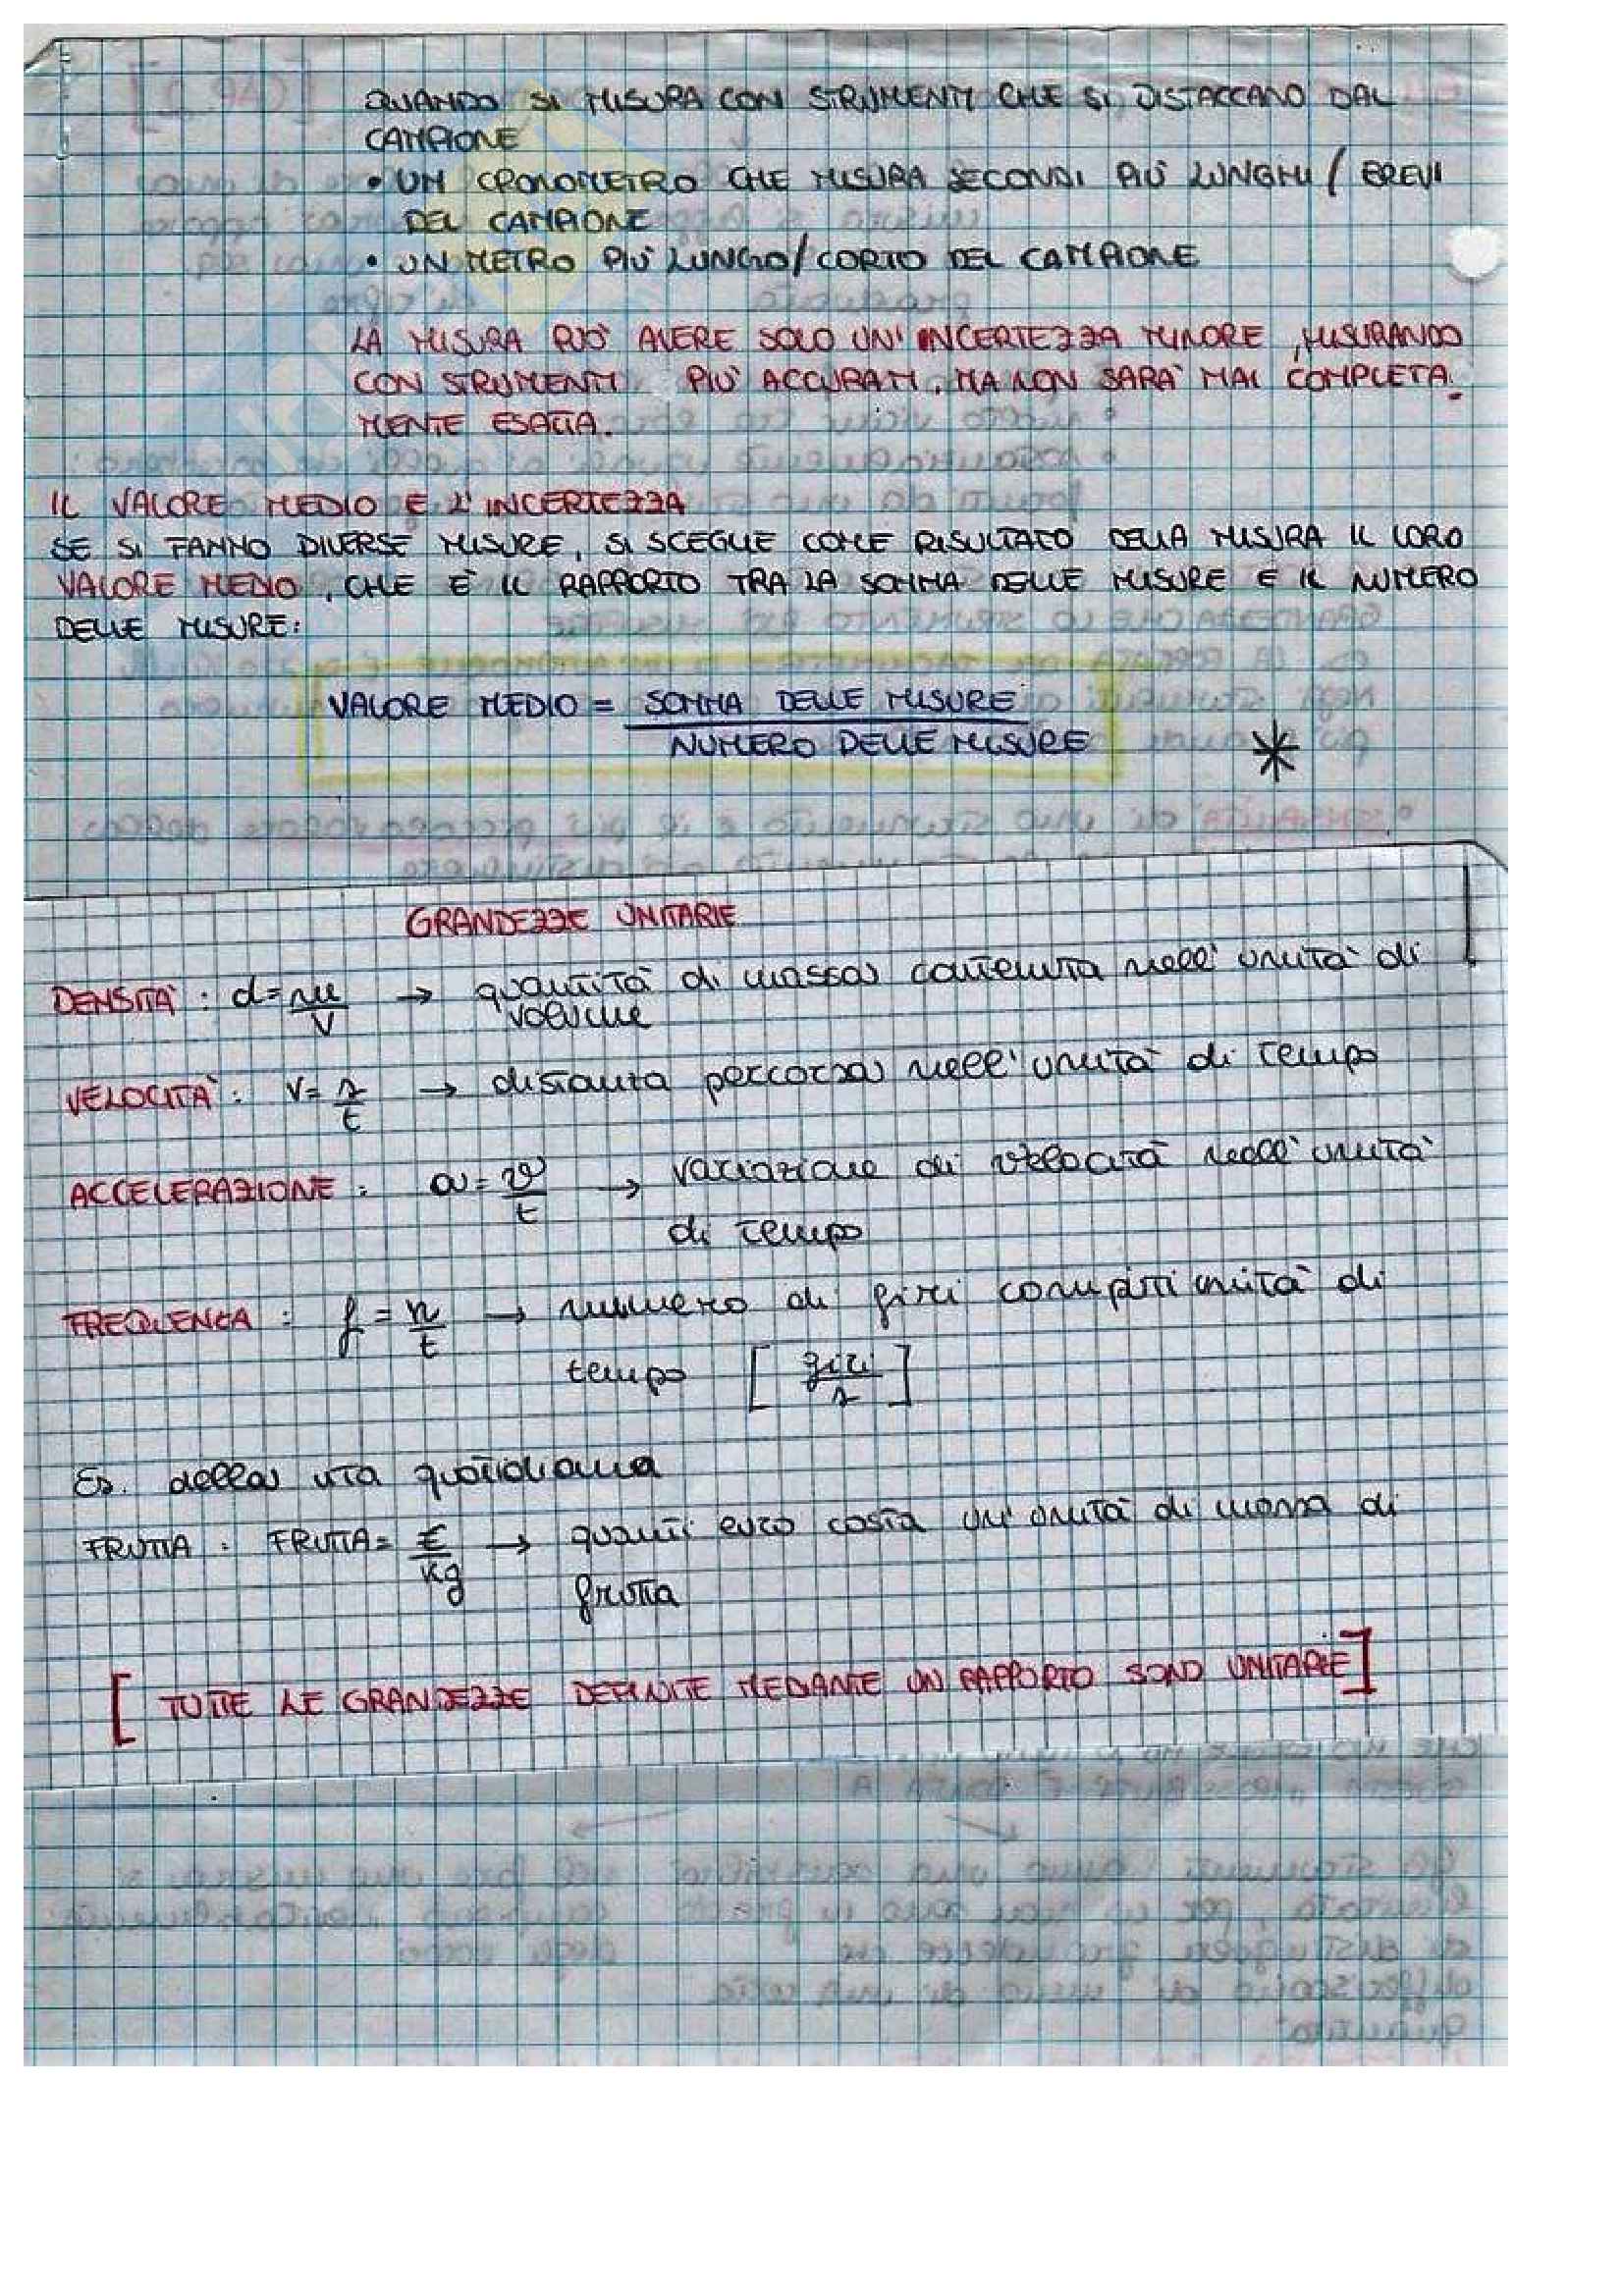 QUANDO SI MISURA CON STRUMENTI CHE SI DISTACCANO DAL
CAMPIONE
• UN CRONOMETRO CHE MISURA SECONDI PIÙ LUNGHI / BREVI
DEL CAMPIONE
• UN METRO PIÙ LUNGO/CORTO DEL CAMPIONE
LA MISURA PUÒ AVERE SOLO UN'INCERTEZZA MINORE, MISURANDO
CON STRUMENTI PIÙ ACCURATI, MA NON SARÀ MAI COMPLETA-
MENTE ESATTA.
IL VALORE MEDIO E L'INCERTEZZA
SE SI FANNO DIVERSE MISURE, SI SCEGLIE COME RISULTATO DELLA MISURA IL LORO
VALORE MEDIO, CHE È IL RAPPORTO TRA LA SOMMA DELLE MISURE E IL NUMERO
DELLE MISURE:
VALORE MEDIO = SOMMA DELLE MISURE
NUMERO DELLE MISURE
*
GRANDEZZE UNITARIE
DENSITÀ: d = m/V → quantità di massa contenuta nell'unità di
volume
VELOCITÀ: v = s/t → distanza percorsa nell'unità di tempo
ACCELERAZIONE: a = v/t → variazione di velocità nell'unità
di tempo
FREQUENZA: f = n/t → numero di giri compiuti unità di
tempo [giri/s]
Es. della vita quotidiana
FRUTTA: FRUTTA = €/kg → quanti euro costa un'unità di massa di
frutta
[TUTTE LE GRANDEZZE DEFINITE MEDIANTE UN RAPPORTO SONO UNITARIE]